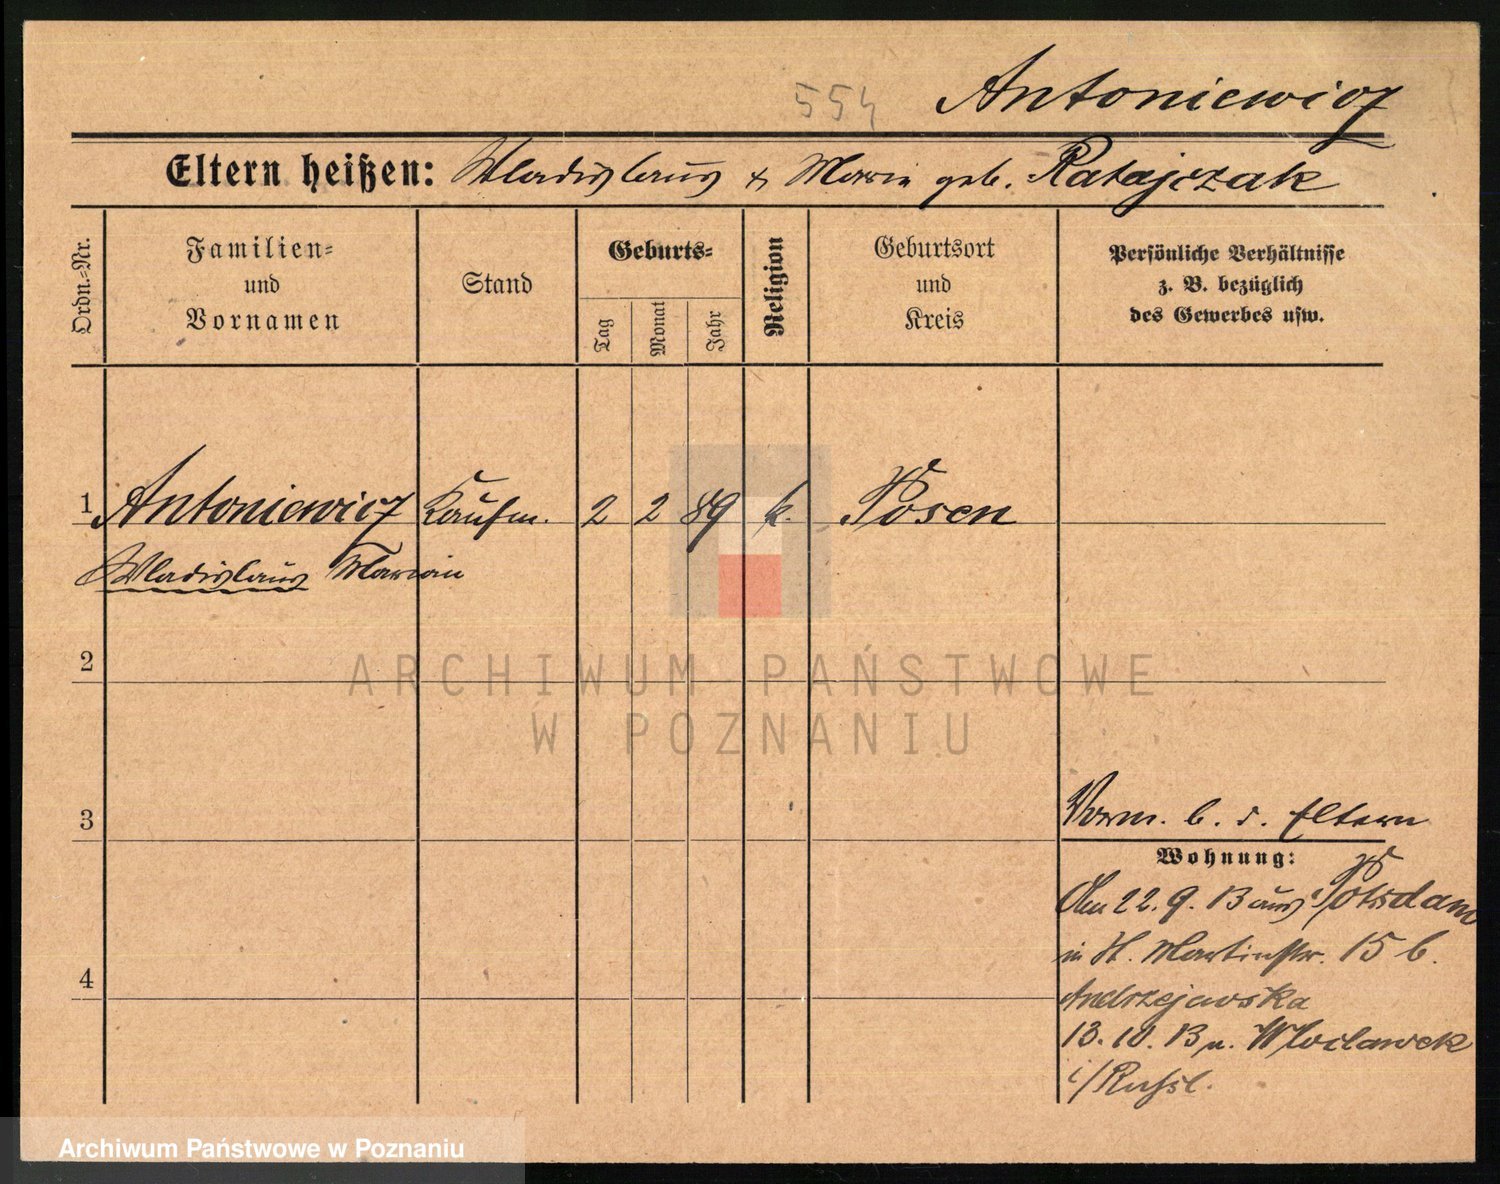 554
Antoniewicz
Eltern heißen: Wladislaus & Maria geb. Ratajczak
Ordn.-Nr.
Familien-
und
Vornamen
Stand
Geburts-
Tag
Monat
Jahr
Religion
Geburtsort
und
Kreis
Persönliche Verhältnisse
z. B. bezüglich
des Gewerbes usw.
1 Antoniewicz Kaufm. 2 2 89 k. Posen
Wladislaus Marian
2
3
Vorm. b. d. Eltern
Wohnung:
Am 22.9.13 aus Potsdam
in St. Martinstr. 15 b.
Andrzejewska
13.10.13 n. Wloclawek
i/Rußl.
4
ARCHIWUM PAŃSTWOWE
W POZNANIU
Archiwum Państwowe w Poznaniu